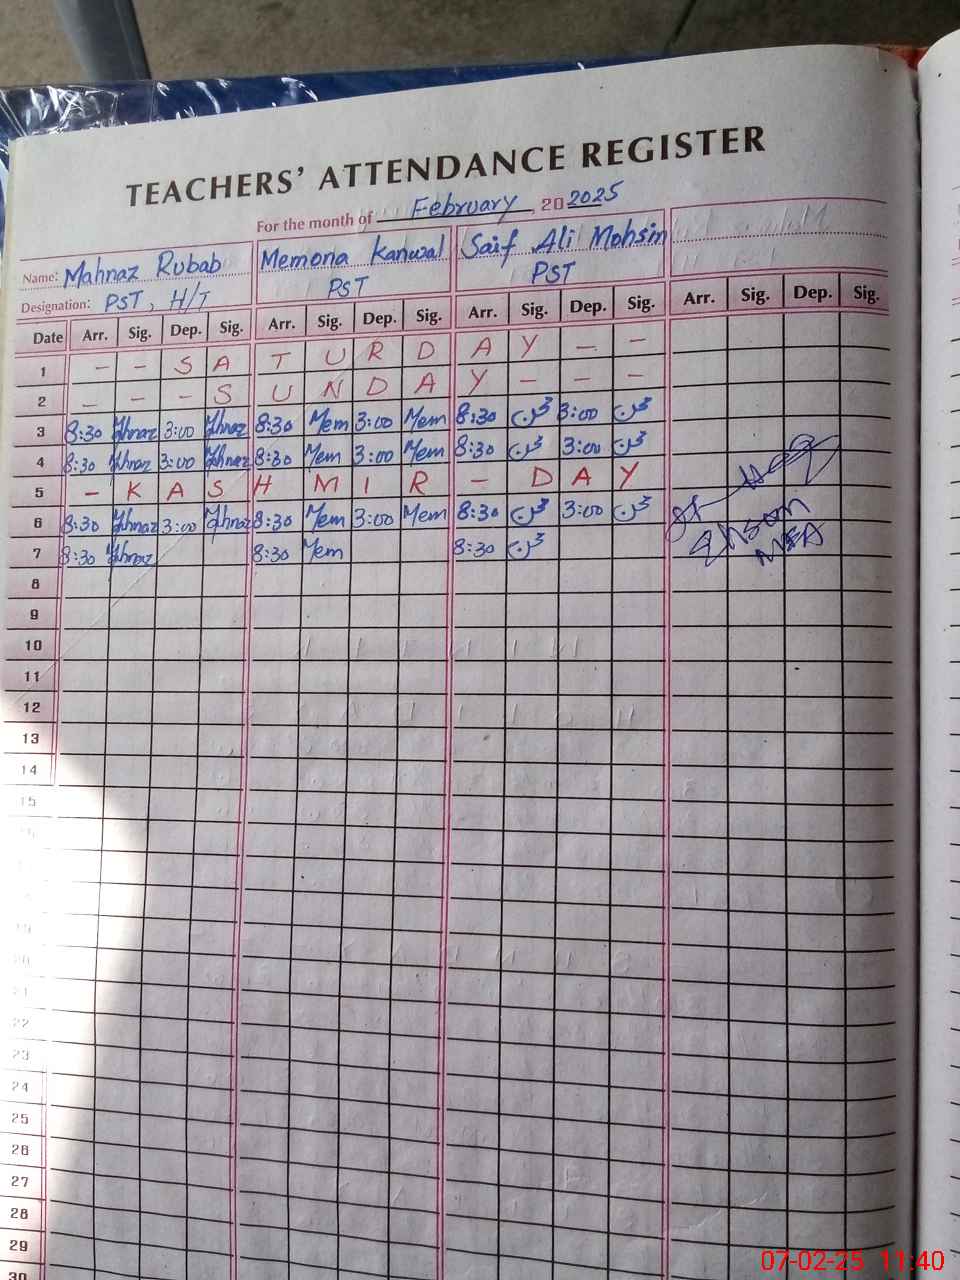 TEACHERS' ATTENDANCE REGISTER
For the month of February, 20 2025
Name: Mahnaz Rubab Memona Kanwal Saif Ali Mohsin
Designation: PST, H/T PST PST
Date Arr. Sig. Dep. Sig. Arr. Sig. Dep. Sig. Arr. Sig. Dep. Sig. Arr. Sig. Dep. Sig.
1 - - S A T U R D A Y - -
2 - - - S U N D A Y - - -
3 8:30 3:00 8:30 Mem 3:00 Mem 8:30 3:00
4 8:30 3:00 8:30 Mem 3:00 Mem 8:30 3:00
5 - K A S H M I R - D A Y
6 8:30 3:00 8:30 Mem 3:00 Mem 8:30 3:00
7 8:30 8:30 Mem 8:30
Ahson
MEA
8
9
10
11
12
13
14
15
20
21
22
23
24
25
26
27
28
29
30
07-02-25 11:40